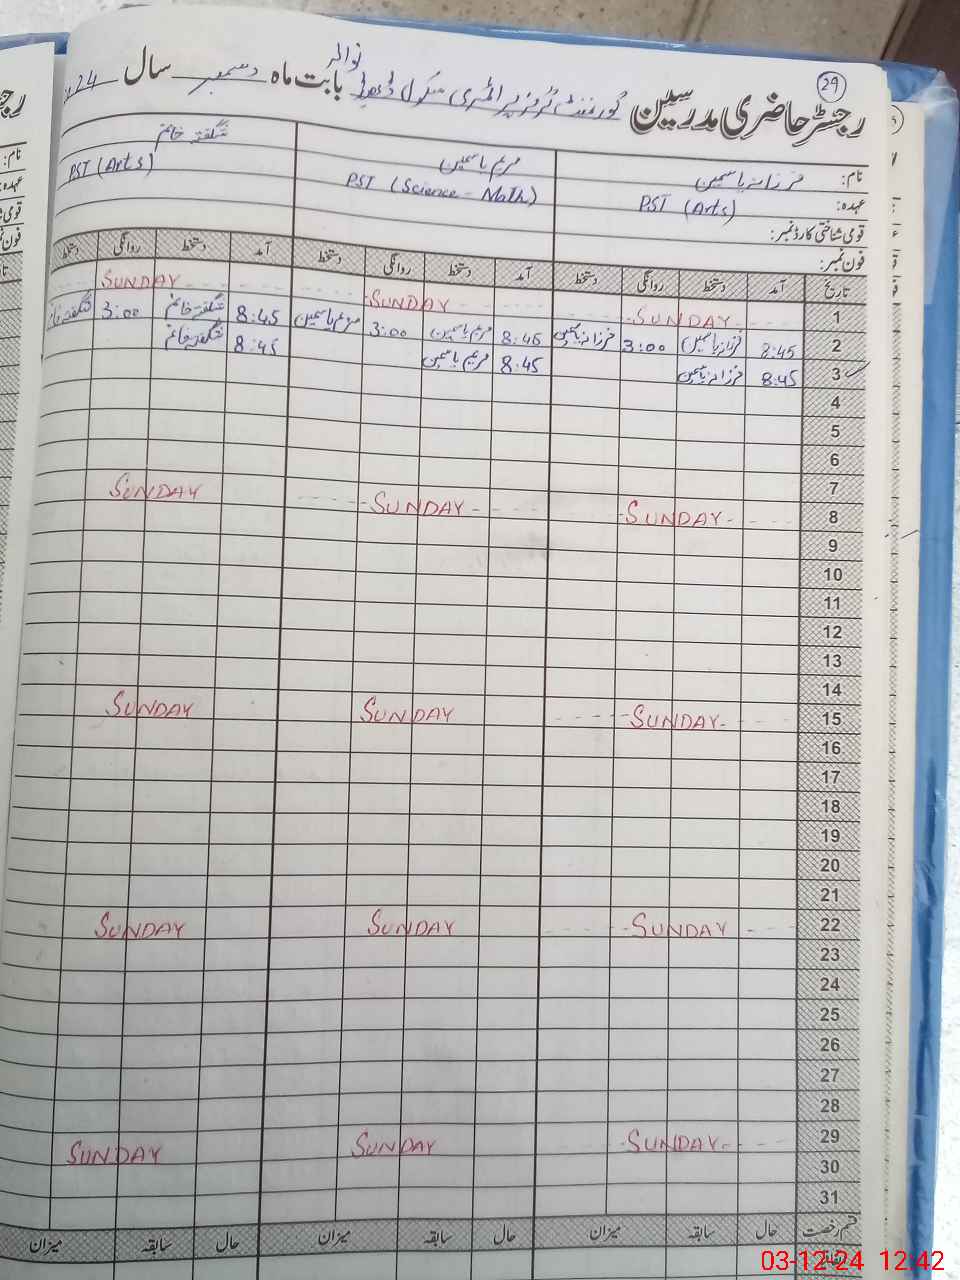 29
رجسٹر حاضری مدرسین گورنمنٹ گرلز پرائمری سکول نوالہ بابت ماہ دسمبر سال 24
نام: فرزانہ یاسمین مریم یاسمین شگفتہ خانم
عہدہ: PST (Arts) PST (Science - Math) PST (Arts)
قومی شناختی کارڈ نمبر:
فون نمبر:
تاریخ آمد دستخط روانگی دستخط آمد دستخط روانگی دستخط آمد دستخط روانگی دستخط
1 SUNDAY SUNDAY SUNDAY
2 8:45 فرزانہ یاسمین 3:00 فرزانہ یاسمین 8:45 مریم یاسمین 3:00 مریم یاسمین 8:45 شگفتہ خانم 3:00 شگفتہ خانم
3 8:45 فرزانہ یاسمین 8:45 مریم یاسمین 8:45 شگفتہ خانم
4
5
6
7
8 SUNDAY SUNDAY SUNDAY
9
10
11
12
13
14
15 SUNDAY SUNDAY SUNDAY
16
17
18
19
20
21
22 SUNDAY SUNDAY SUNDAY
23
24
25
26
27
28
29 SUNDAY SUNDAY SUNDAY
30
31
قسم رخصت حال سابقہ میزان حال سابقہ میزان حال سابقہ میزان
03-12-24 12:42